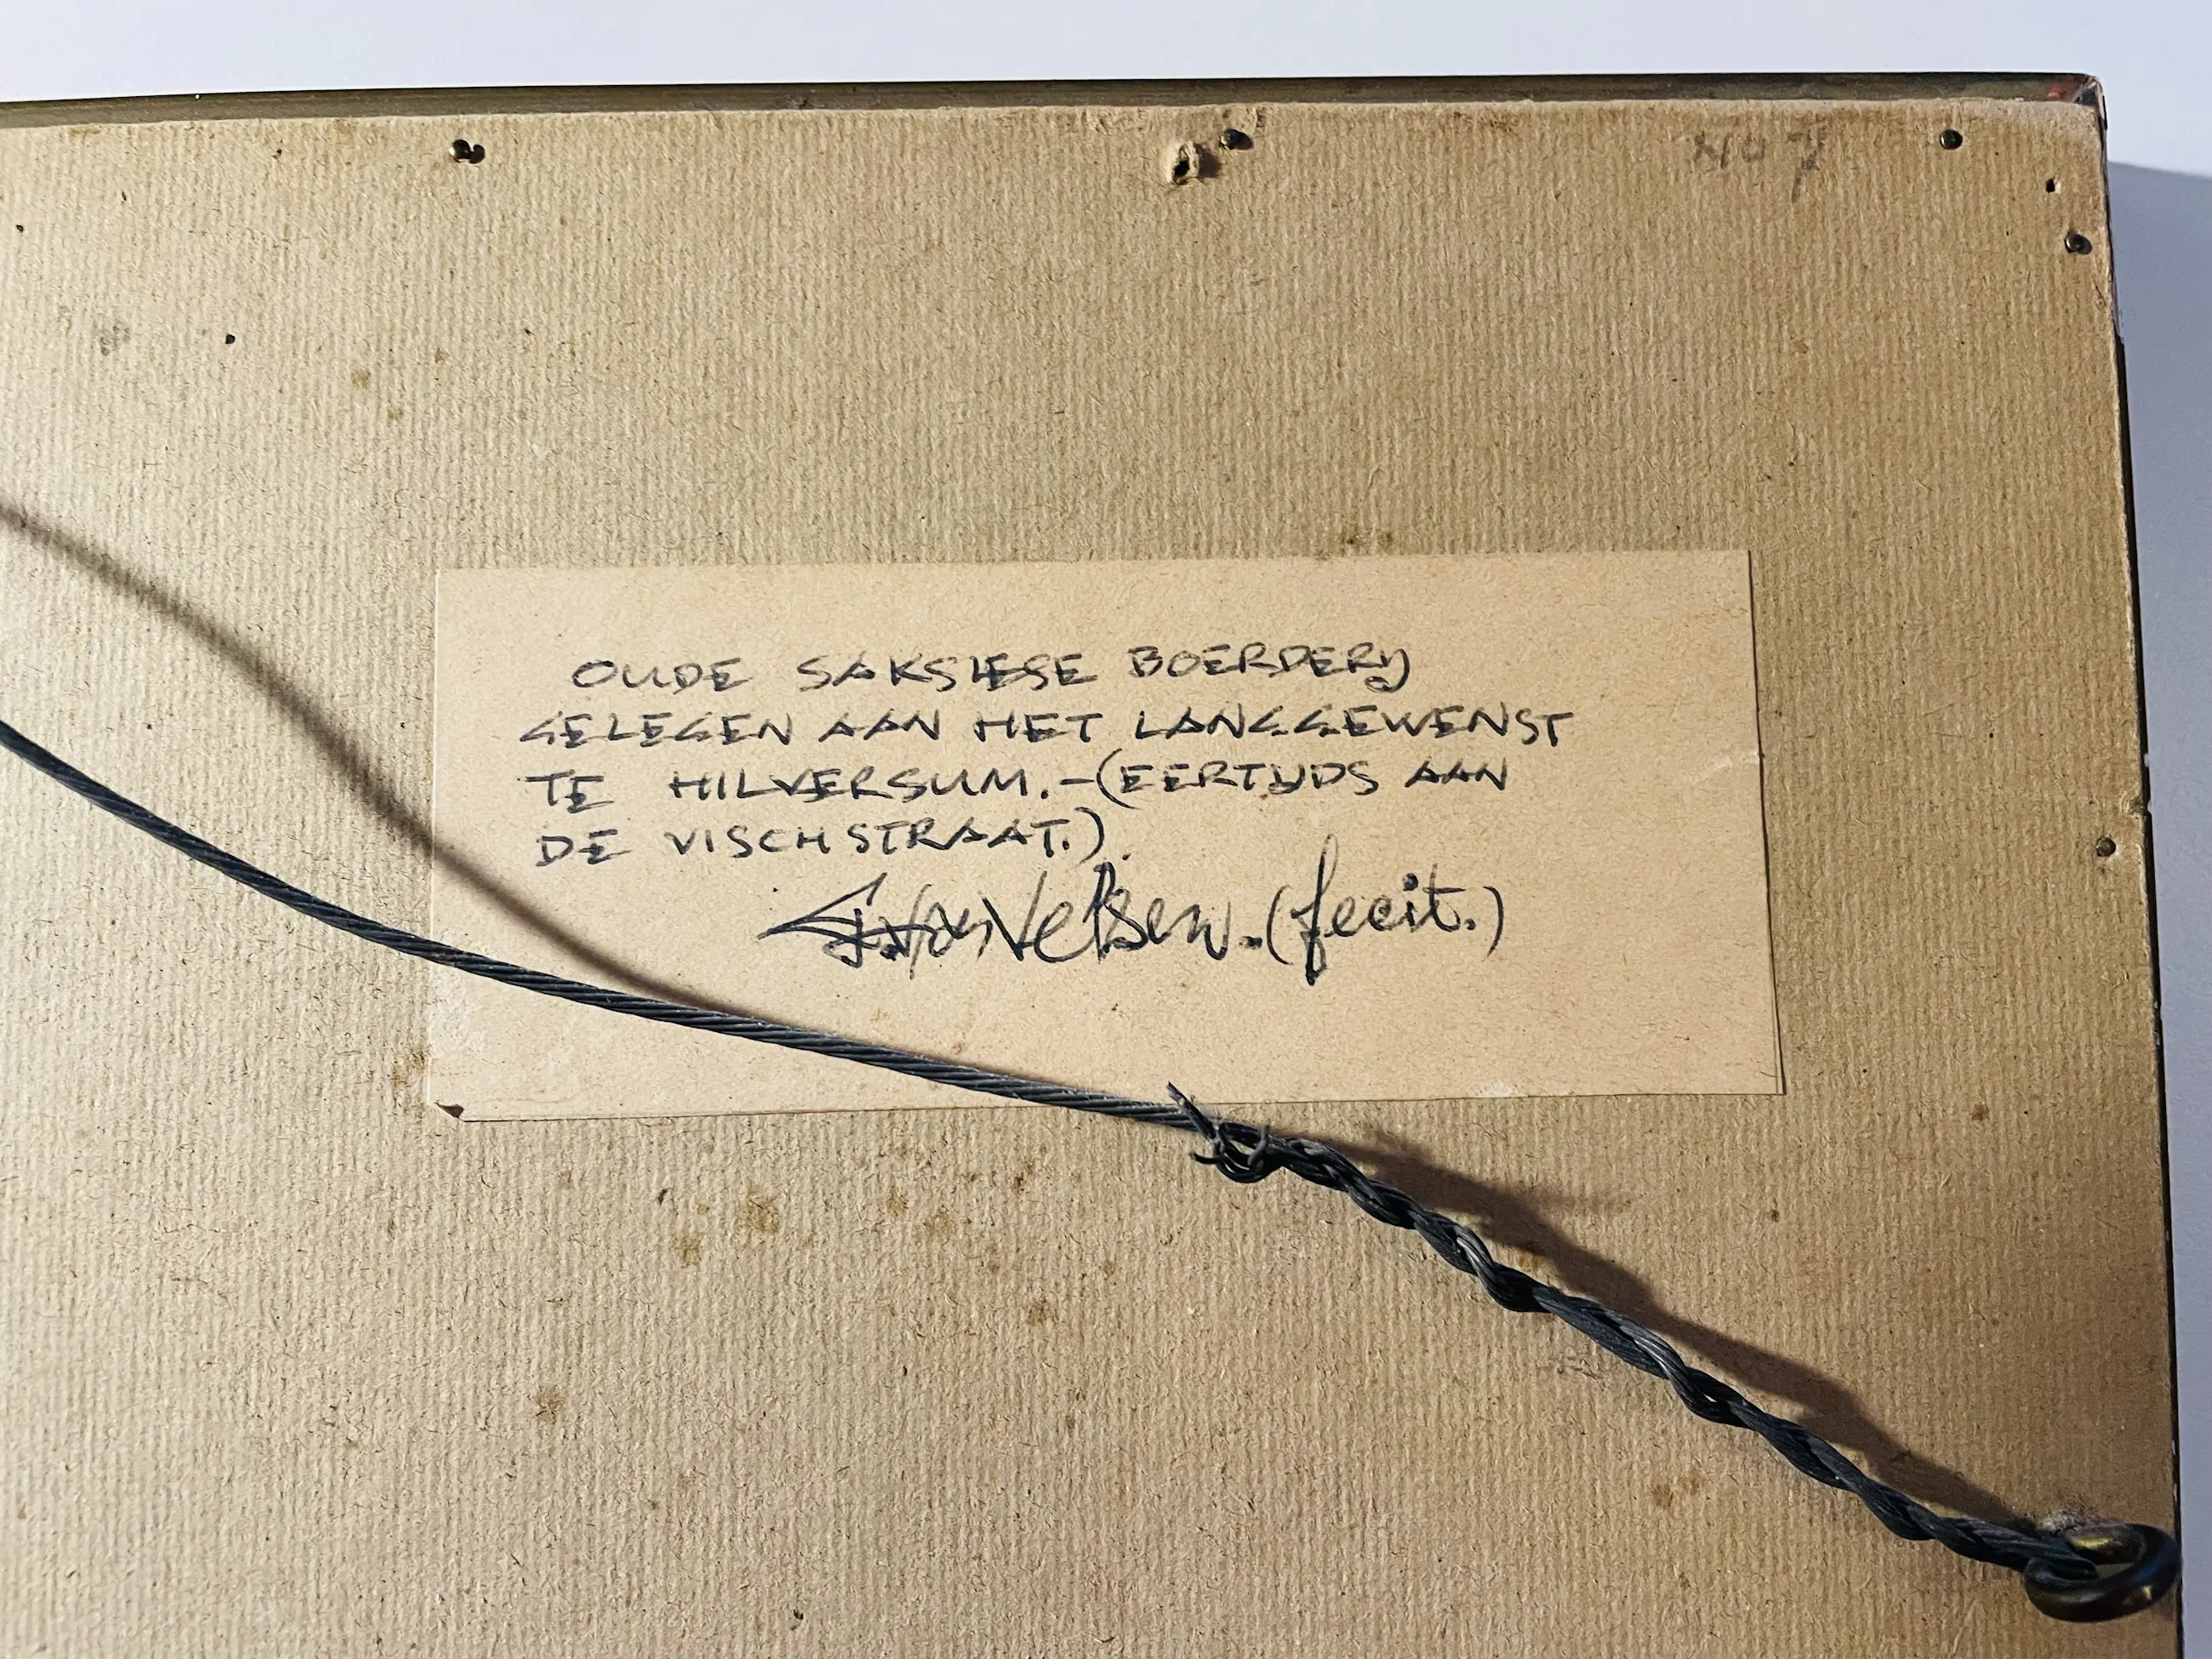 No 7
OUDE SAKSIESE BOERDERIJ
GELEGEN AAN HET LANGGEWENST
TE HILVERSUM.-(EERTIJDS AAN
DE VISCHSTRAAT.).
G. van Velsen. (fecit.)